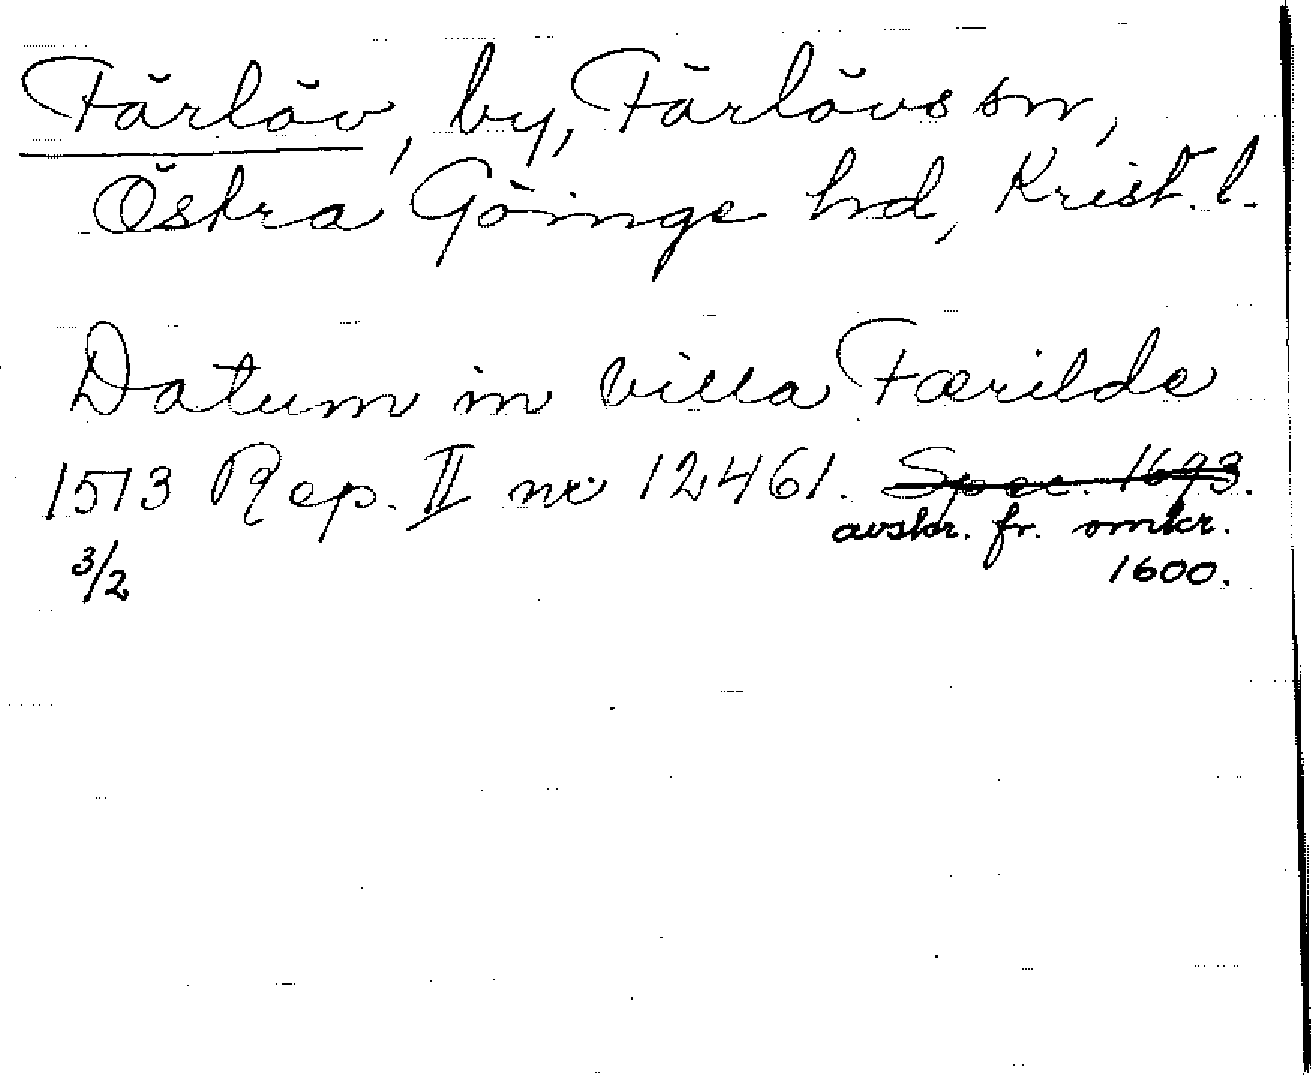 Färlöv, by, Färlövs sn,
Östra Göinge hd, Krist. l.
Datum in villa Færilde
1513 Rep. II nr 12461. Spec. 1693.
avskr. fr. omkr.
3/2
1600.